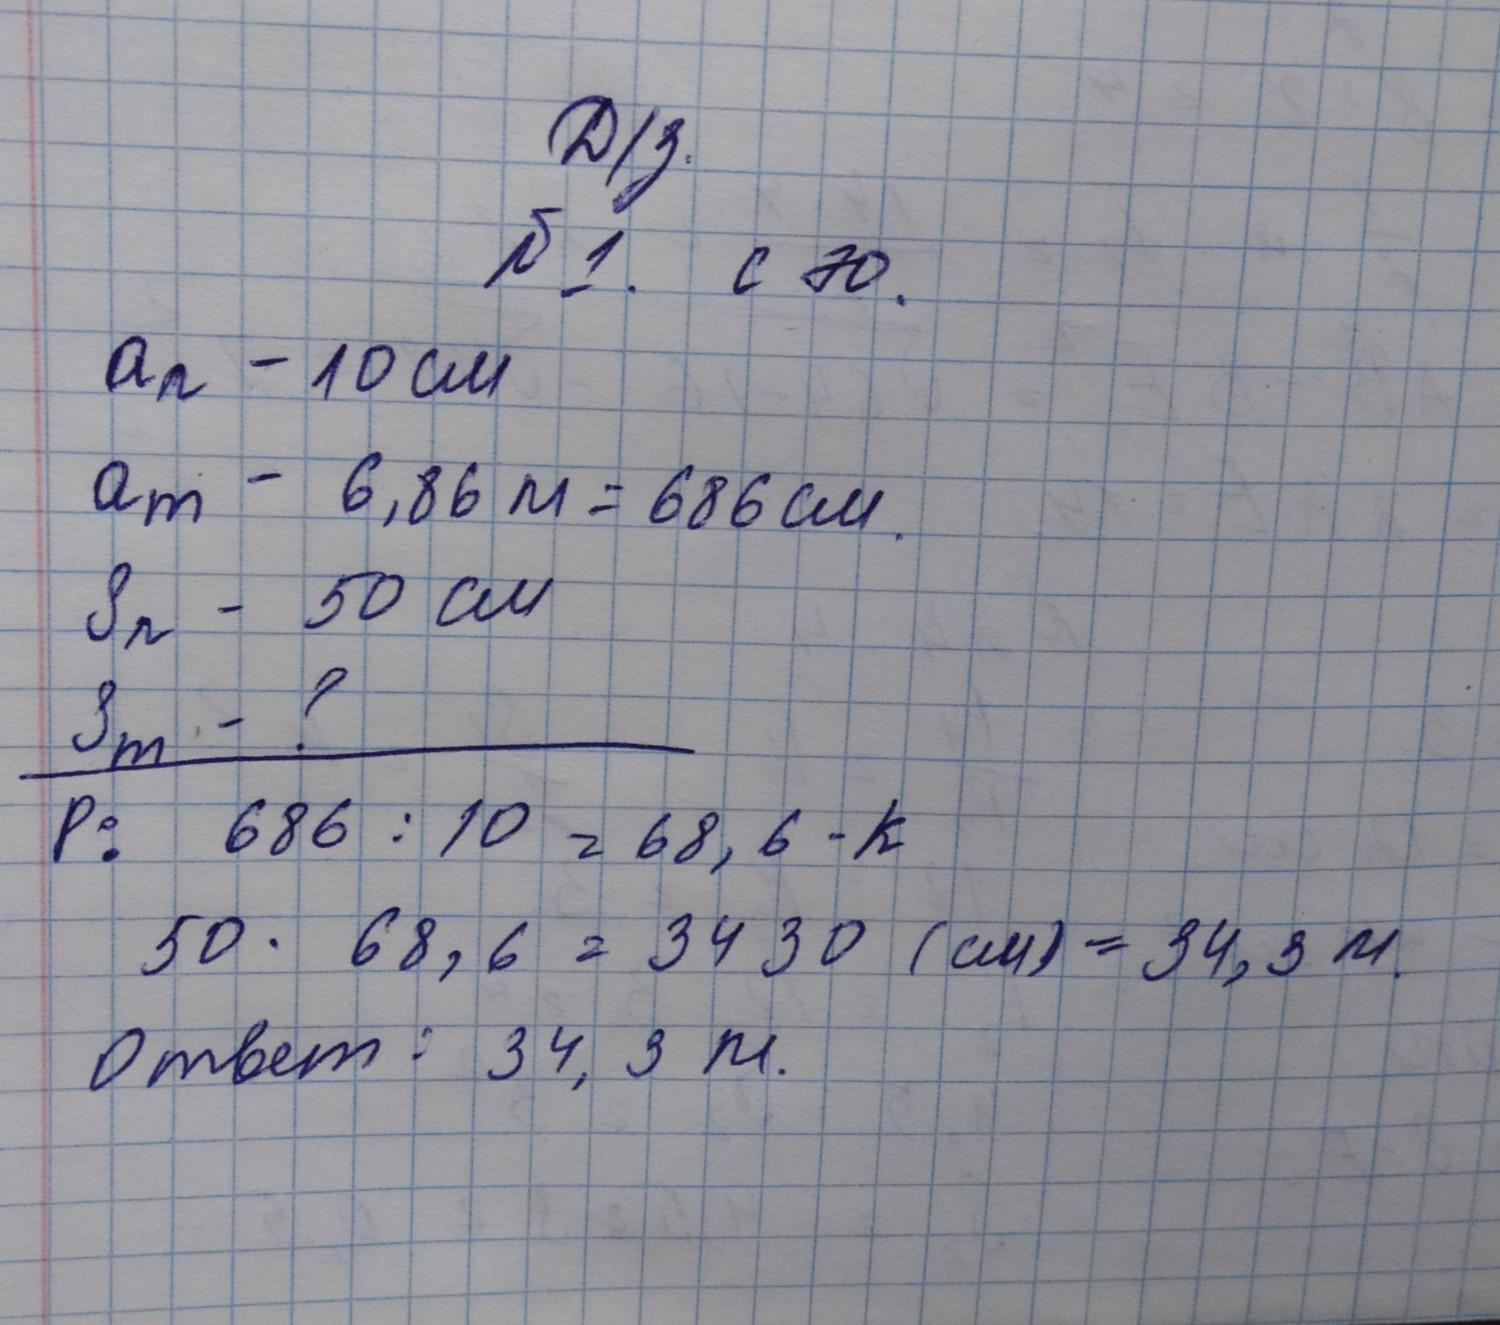 Д/з.
№ 1. с 70.
aл - 10 см
am - 6,86 м = 686 см.
Sл - 50 см
Sm - ?
Р: 686 : 10 = 68,6 - k
50 · 68,6 = 3430 (см) = 34,3 м.
Ответ: 34,3 м.